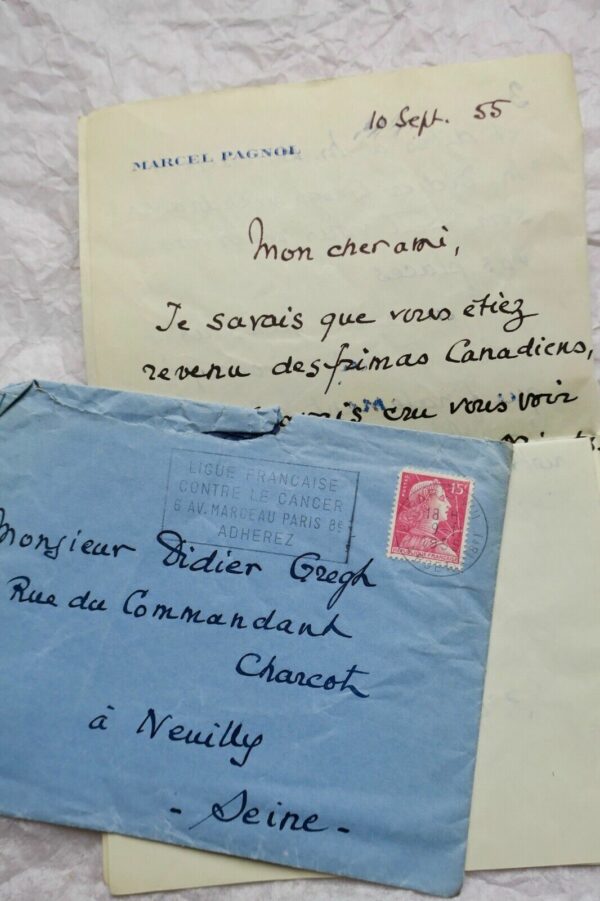 10 Sept. 55
MARCEL PAGNOL
Mon cher ami,
Je savais que vous étiez
revenu des frimas Canadiens,
cru vous voir
LIGUE FRANCAISE
CONTRE LE CANCER
6 AV. MARCEAU PARIS 8e
ADHEREZ
15F
REPUBLIQUE FRANCAISE
18
9
Monsieur Didier Gregh
Rue du Commandant
Charcot
à Neuilly
- Seine -